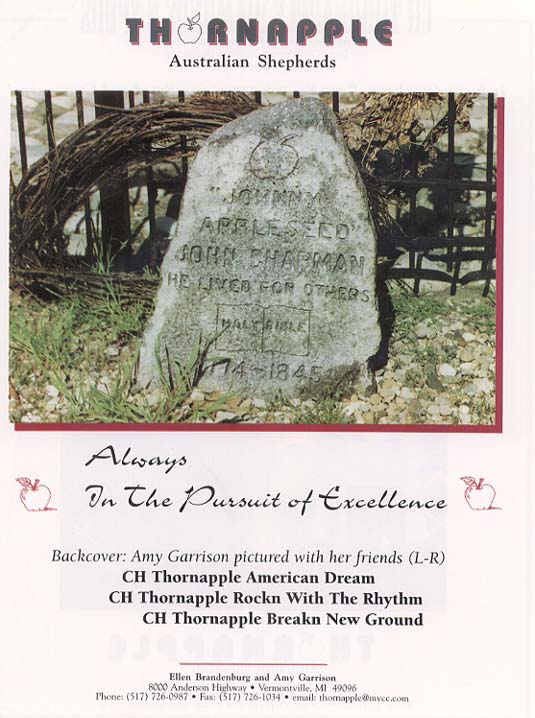 THORNAPPLE
Australian Shepherds
"JOHNNY
APPLESEED"
JOHN CHAPMAN
HE LIVED FOR OTHERS
HOLY BIBLE
1774-1845
Always
In The Pursuit of Excellence
Backcover: Amy Garrison pictured with her friends (L-R)
CH Thornapple American Dream
CH Thornapple Rockn With The Rhythm
CH Thornapple Breakn New Ground
Ellen Brandenburg and Amy Garrison
8000 Anderson Highway • Vermontville, MI 49096
Phone: (517) 726-0987 • Fax: (517) 726-1034 • email: thornapple@mvcc.com